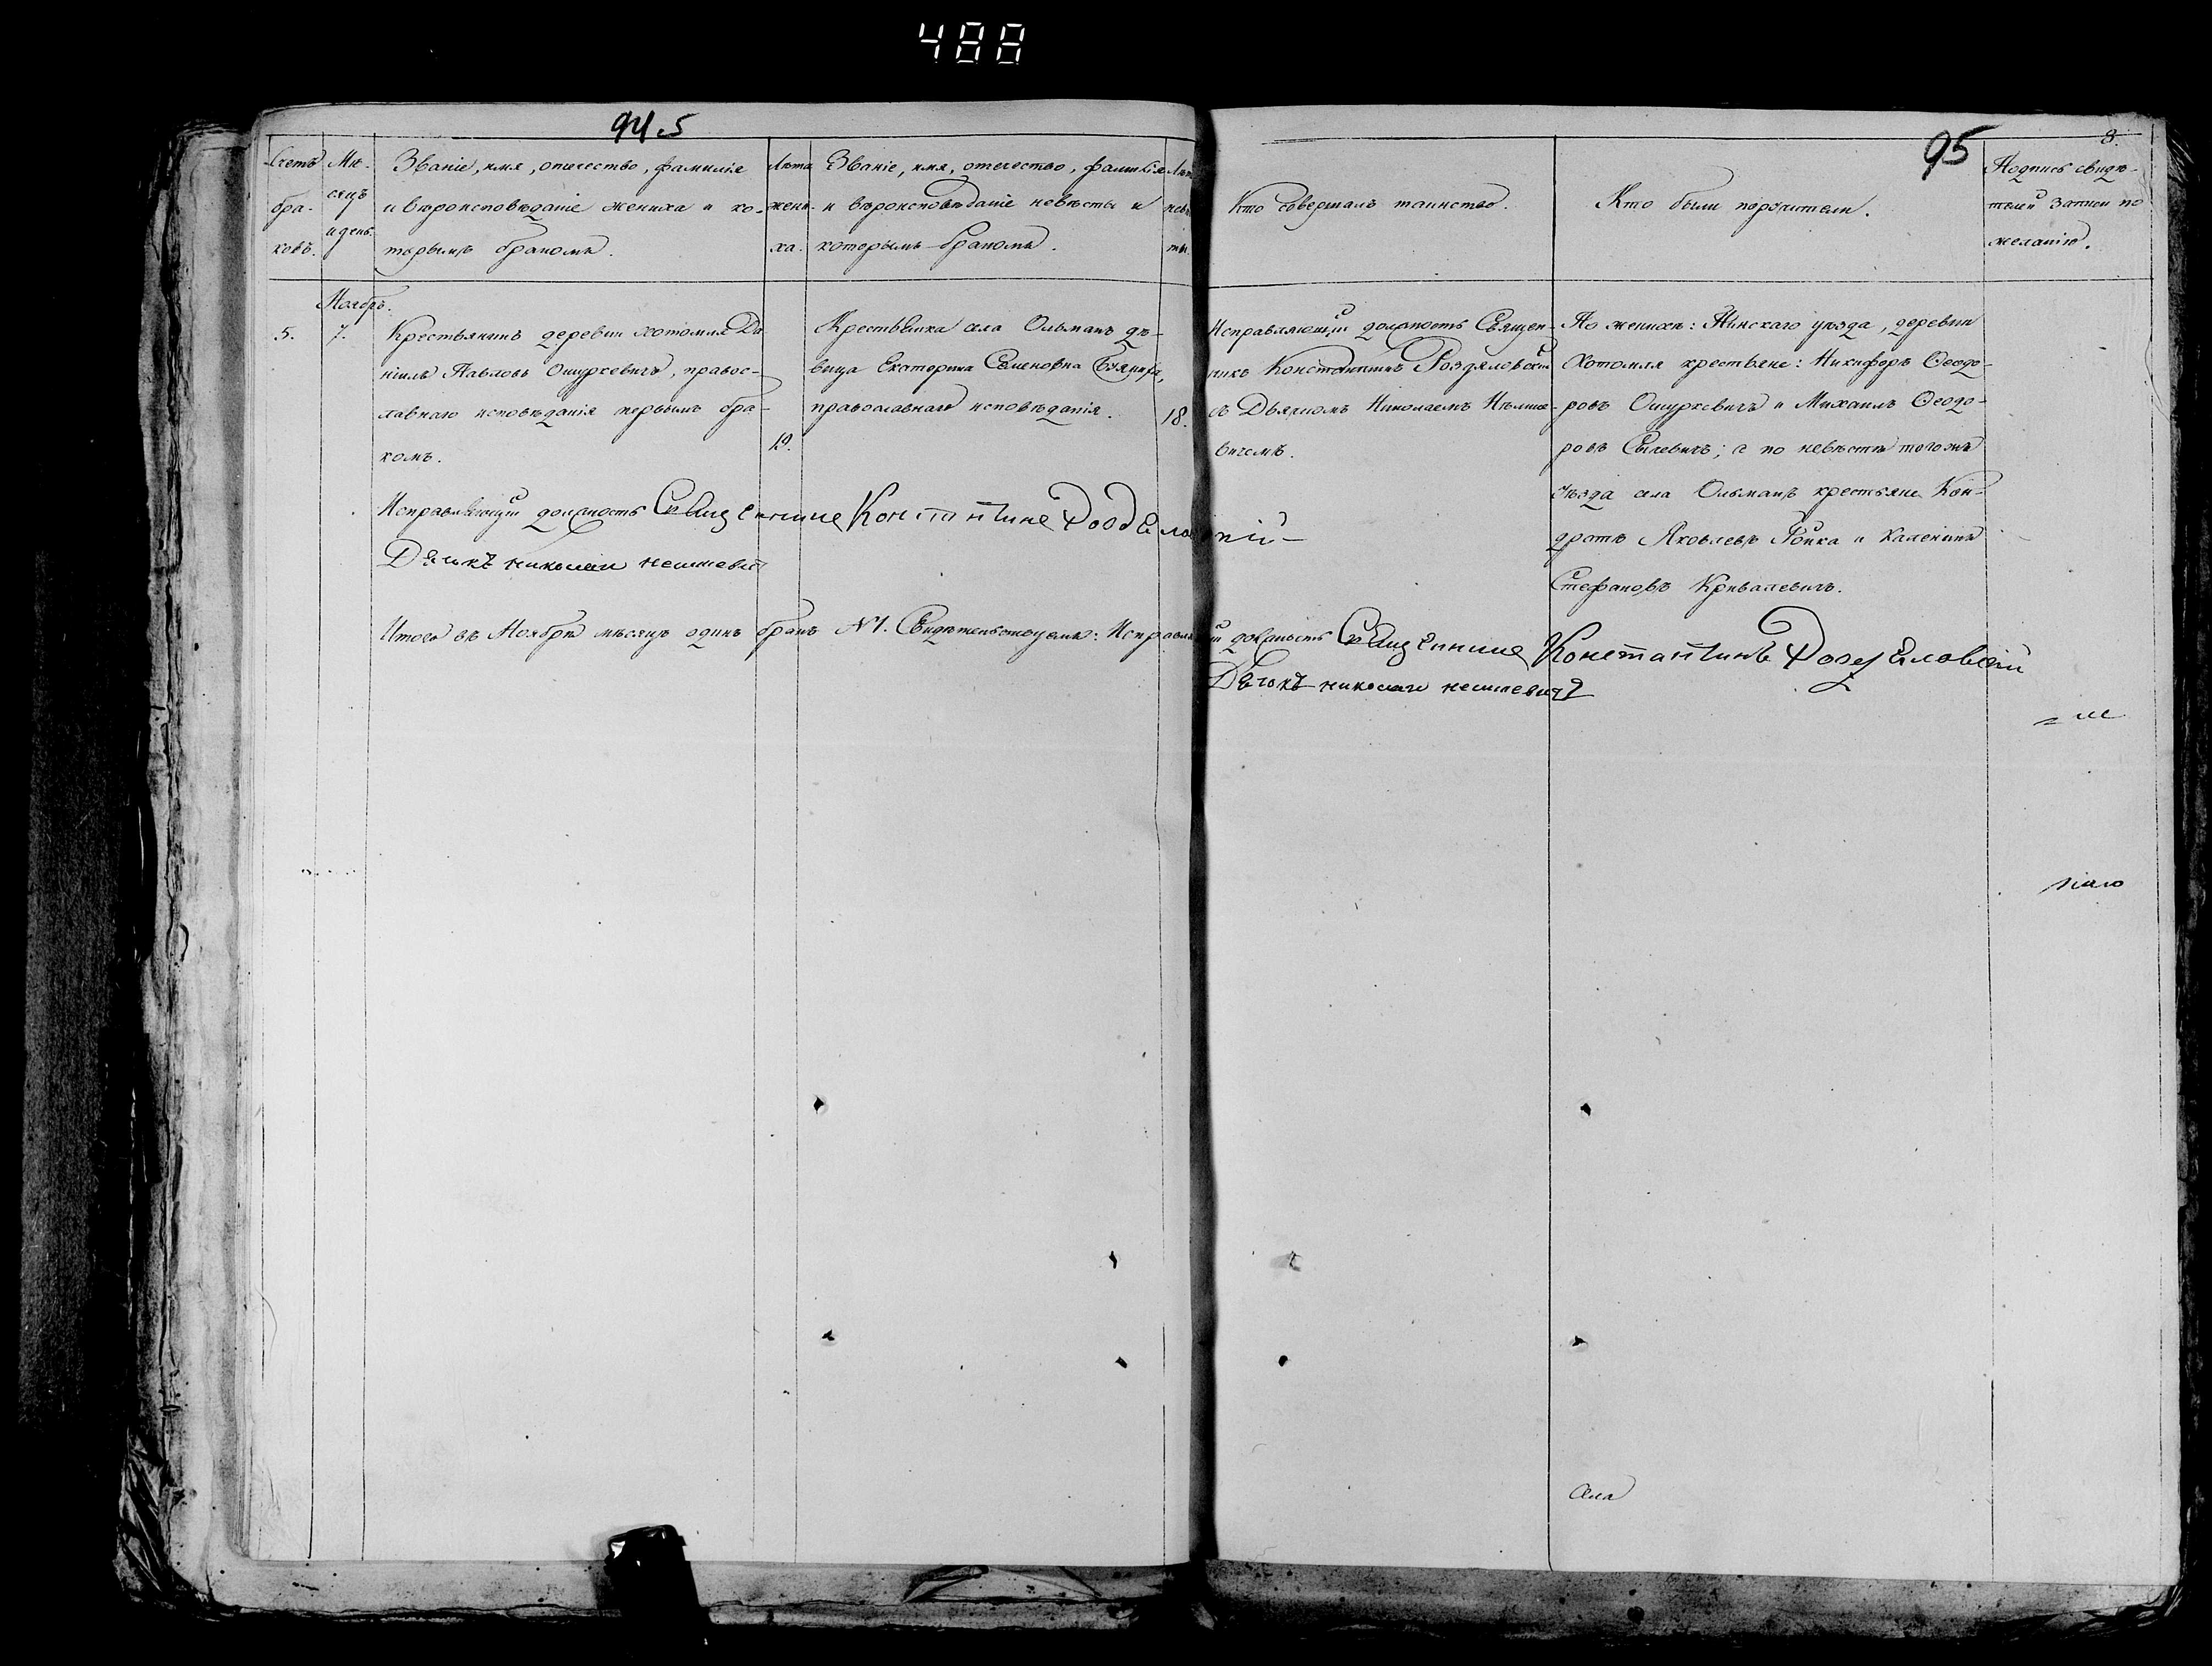 488
94.5
95
8.
Счетъ бра-ковъ.
Мѣ-сяцъ и день.
Званіе, имя, отечество, фамилія
и вѣроисповѣданіе жениха и ко-
торымъ бракомъ.
Лѣта жени-ха.
Званіе, имя, отечество, фамилія
и вѣроисповѣданіе невѣсты и
которымъ бракомъ.
Кто совершалъ таинство.
Кто были поручители.
Подпись свидѣ-
телей записи по
желанію.
Ноябрь.
5.
7.
Крестьянинъ деревни Хотомля Да-
ніилъ Павловъ Ошуркевичъ, правос-
лавнаго исповѣданія первымъ бра-
комъ.
19.
Крестьянка села Ольманъ дѣ-
вица Екатерина Семеновна
православнаго исповѣданія.
18.
Исправляющій должность Священ-
никъ Константинъ Роздяловскій
съ Дьячкомъ Николаемъ Нѣмше-
вичемъ.
По женихѣ: Пинскаго уѣзда, деревни
Хотомля крестьяне: Никифоръ Ѳеодо-
ровъ Ошуркевичъ и Михаилъ Ѳеодо-
ровъ Сылевичъ; а по невѣстѣ тогожъ
уѣзда села Ольманъ крестьяне Кон-
дратъ Яковлевъ Ройка и Каленикъ
Стефановъ Кривалевичъ.
Исправляющій должность Священникъ Константинъ
Дьячкъ николай
Итого въ Ноябрѣ мѣсяцѣ одинъ бракъ №1. Свидѣтельствуемъ: должность Священникъ Константинъ
Дьячкъ николай
села